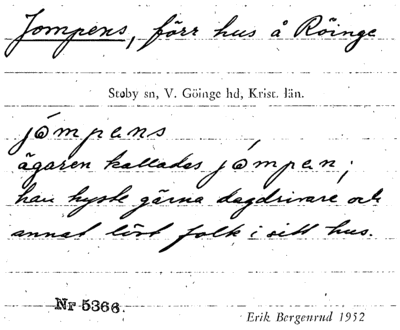 Jompens, förr hus å Röinge
Stoby sn, V. Göinge hd, Krist. län.
jómpens
ägaren kallades jómpen;
han hyste gärna dagdrivare och
annat löst folk i sitt hus.
Nr 5366.
Erik Bergenrud 1952